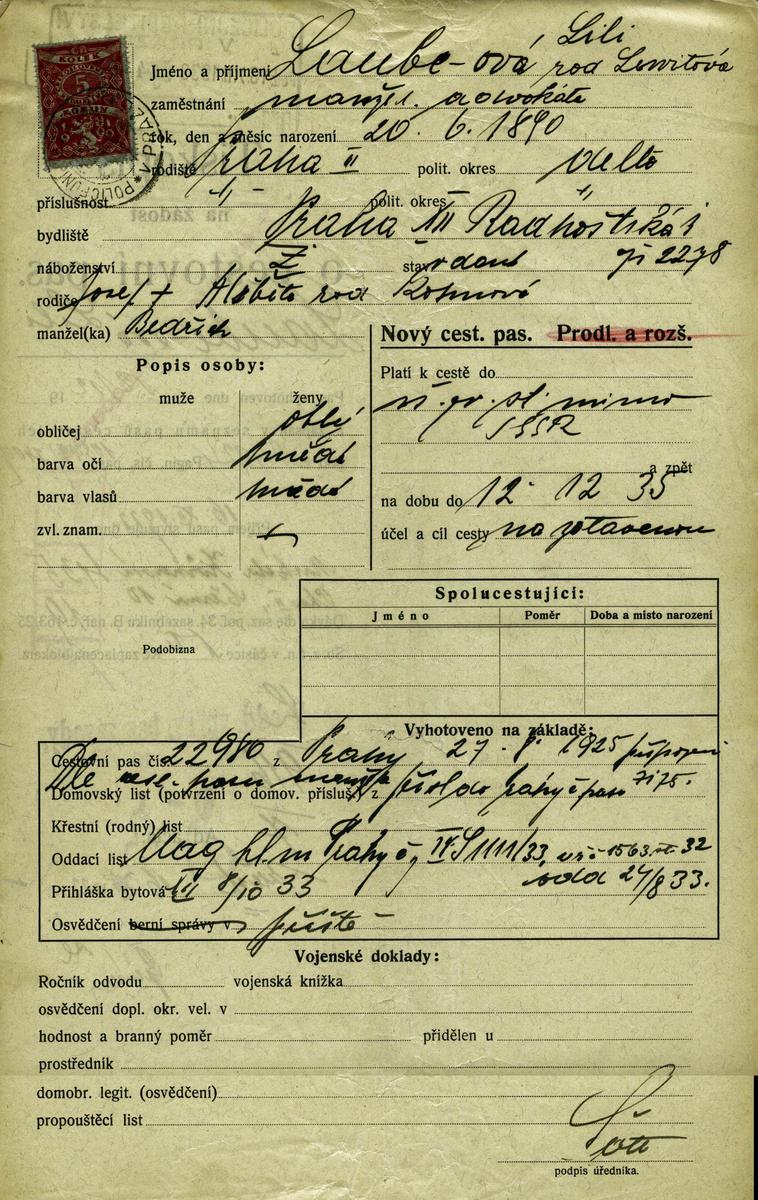 KOLEK
5
KORUN
Jméno a příjmení Laube-ová Lili rod Lewitová
zaměstnání manžel. advokáta
rok, den a měsíc narození 20. 6. 1890
rodiště Praha II polit. okres
příslušnost -"- polit. okres "
bydliště Praha XII Radhošťská 1
náboženství ž. stav vdaná čp 2278
rodiče Josef + Alžběta rod
manžel(ka) Bedřich
Nový cest. pas. Prodl. a rozš.
Popis osoby:
muže ženy
obličej oblý
barva očí hnědé
barva vlasů hnědé
zvl. znam.
Platí k cestě do
mimo
SSSR
a zpět
na dobu do 12 12 35
účel a cíl cesty na zotavenou
Spolucestující:
Jméno Poměr Doba a místo narození
Podobizna
Vyhotoveno na základě:
Cestovní pas čís. 22980 z Prahy 1925
Dle
Domovský list (potvrzení o domov. přísluš.) z
Křestní (rodný) list
Oddací list Mag hl. m Prahy č. 32
Přihláška bytová 8/10 33 27/8 33.
Osvědčení berní správy v
Vojenské doklady:
Ročník odvodu vojenská knížka
osvědčení dopl. okr. vel. v
hodnost a branný poměr přidělen u
prostředník
domobr. legit. (osvědčení)
propouštěcí list
podpis úředníka.